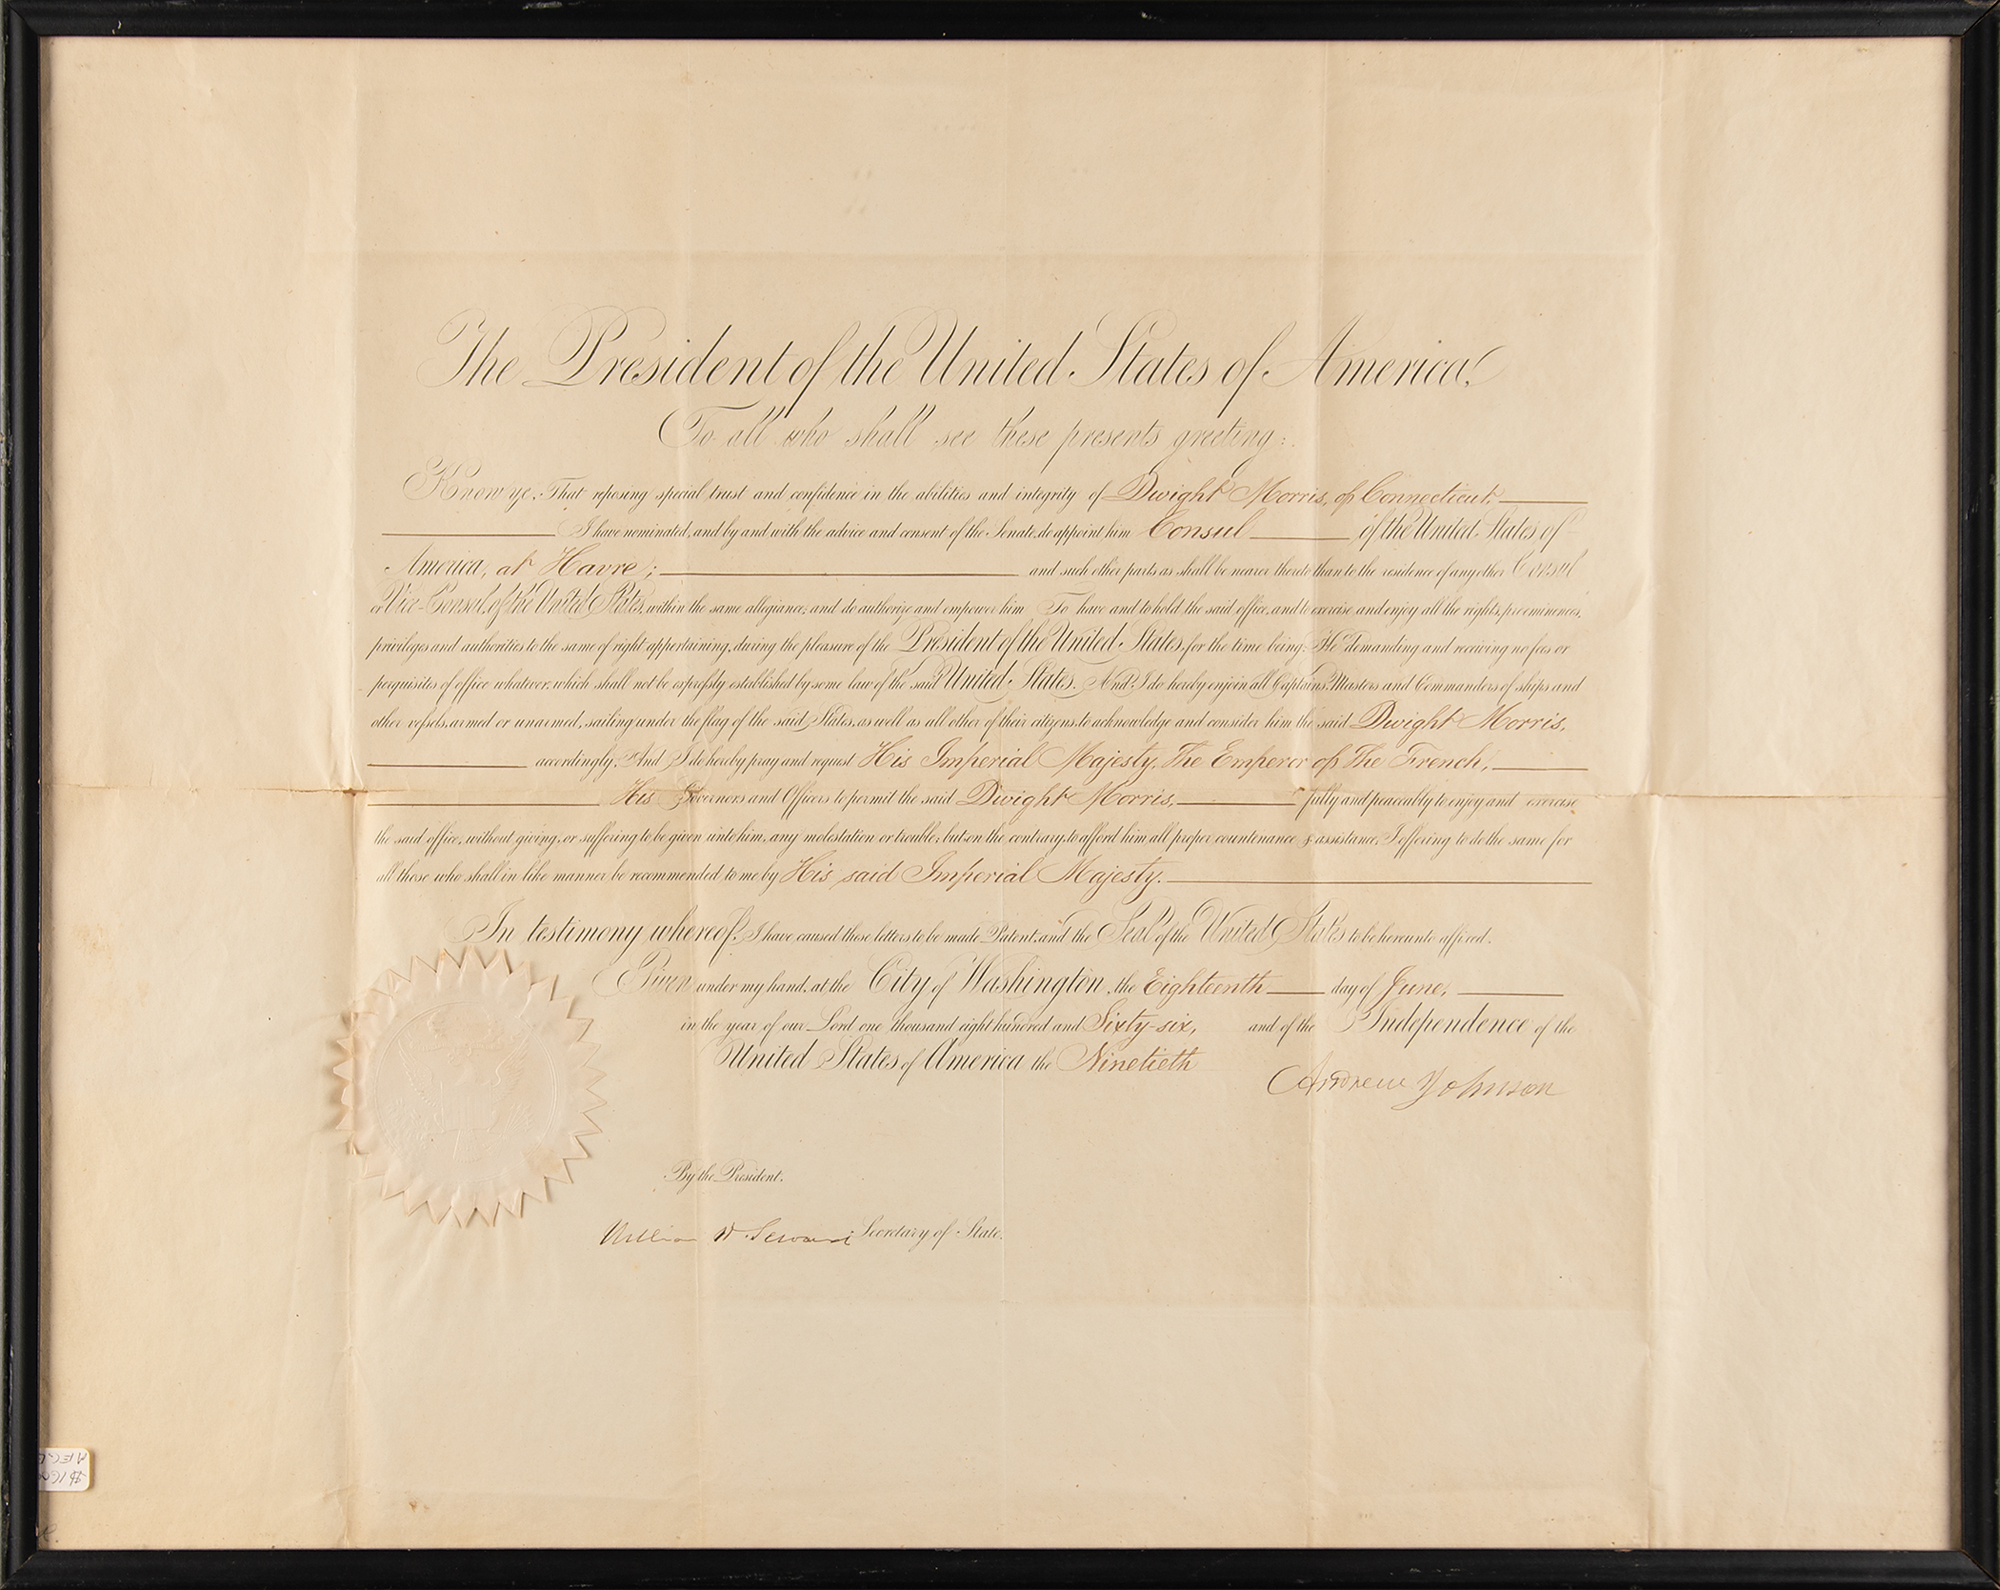 The President of the United States of America,
To all who shall see these presents greeting:
Know ye, That reposing special trust and confidence in the abilities and integrity of Dwight Morris, of Connecticut,
I have nominated, and by and with the advice and consent of the Senate, do appoint him Consul of the United States of
America, at Havre; and such other parts as shall be nearer thereto than to the residence of any other Consul
or Vice-Consul of the United States, within the same allegiance; and do authorize and empower him To have and to hold the said office, and to exercise and enjoy all the rights, preeminences,
privileges and authorities to the same of right appertaining, during the pleasure of the President of the United States, for the time being: He demanding and receiving no fees or
perquisites of office whatever, which shall not be expressly established by some law of the said United States. And I do hereby enjoin all Captains, Masters and Commanders of ships and
other vessels, armed or unarmed, sailing under the flag of the said States, as well as all other of their citizens, to acknowledge and consider him the said Dwight Morris,
accordingly. And I do hereby pray and request His Imperial Majesty, The Emperor of The French,
His Governors and Officers to permit the said Dwight Morris, fully and peaceably to enjoy and exercise
the said office, without giving, or suffering to be given unto him, any molestation or trouble; but on the contrary, to afford him all proper countenance & assistance, I offering to do the same for
all those who shall in like manner be recommended to me by His said Imperial Majesty.
In testimony whereof, I have caused these letters to be made Patent, and the Seal of the United States to be hereunto affixed.
Given under my hand, at the City of Washington, the Eighteenth day of June,
in the year of our Lord one thousand eight hundred and Sixty-six, and of the Independence of the
United States of America the Ninetieth
Andrew Johnson
By the President.
William H Seward Secretary of State.